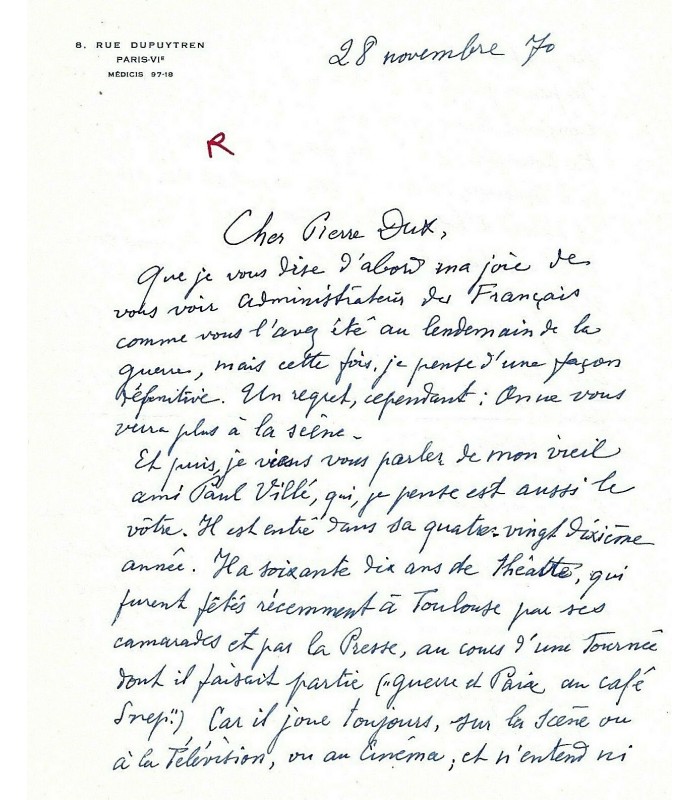 8. RUE DUPUYTREN
PARIS-VIE
MÉDICIS 97-18
28 novembre 70
R
Cher Pierre Dux,
Que je vous dise d'abord ma joie de
vous voir administrateur du Français
comme vous l'avez été au lendemain de la
guerre, mais cette fois, je pense d'une façon
définitive. Un regret, cependant : On ne vous
verra plus à la scène.
Et puis, je viens vous parler de mon vieil
ami Paul Villé, qui, je pense est aussi le
vôtre. Il est entré dans sa quatre-vingt dixième
année. Il a soixante dix ans de théâtre, qui
furent fêtés récemment à Toulouse par ses
camarades et par la Presse, au cours d'une Tournée
dont il faisait partie ("guerre et Paix au café
Snep".) Car il joue toujours, sur la scène ou
à la Télévision, ou au Cinéma, et n'entend ni